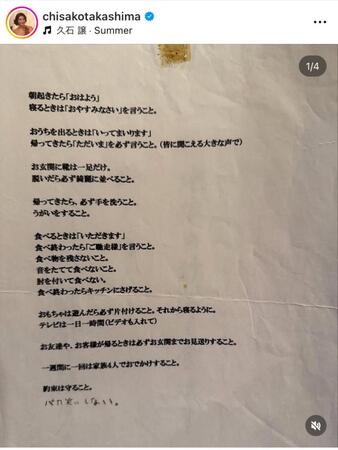 chisakotakashima
久石 譲 · Summer
1/4
朝起きたら「おはよう」
寝るときは「おやすみなさい」を言うこと。
おうちを出るときは「いってまいります」
帰ってきたら「ただいま」を必ず言うこと。（皆に聞こえる大きな声で）
お玄関に靴は一足だけ。
脱いだら必ず綺麗に並べること。
帰ってきたら、必ず手を洗うこと。
うがいをすること。
食べるときは「いただきます」
食べ終わったら「ご馳走様」を言うこと。
食べ物を残さないこと。
音をたてて食べないこと。
肘を付いて食べない。
食べ終わったらキッチンにさげること。
おもちゃは遊んだら必ず片付けること。それから寝るように。
テレビは一日一時間（ビデオも入れて）
お友達や、お客様が帰るときは必ずお玄関までお見送りすること。
一週間に一回は家族4人でおでかけすること。
約束は守ること。
しない。